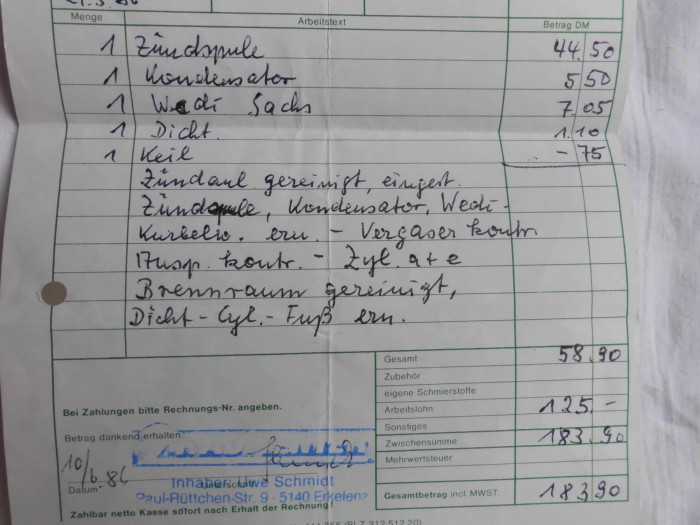 Menge Arbeitstext Betrag DM
1 Zündspule 44.50
1 Kondensator 5 50
1 Wedi Sachs 7.05
1 Dicht. 1.10
1 Keil - 75
Zündanl gereinigt, eingest.
Zündspule, Kondensator, Wedi-
Kurbelw. ern. - Vergaser kontr
Ausp. kontr. - Zyl. a + e
Brennraum gereinigt,
Dicht-Cyl.-Fuß ern.
Gesamt 58.90
Zubehör
eigene Schmierstoffe
Arbeitslohn 125.-
Sonstiges
Zwischensumme 183.90
Mehrwertsteuer
Gesamtbetrag incl. MWST. 183.90
Bei Zahlungen bitte Rechnungs-Nr. angeben.
Betrag dankend erhalten:
10/6.86
Datum
Inhaber Uwe Schmidt
Paul-Rüttchen-Str. 9 - 5140 Erkelenz
Zahlbar netto Kasse sofort nach Erhalt der Rechnung!